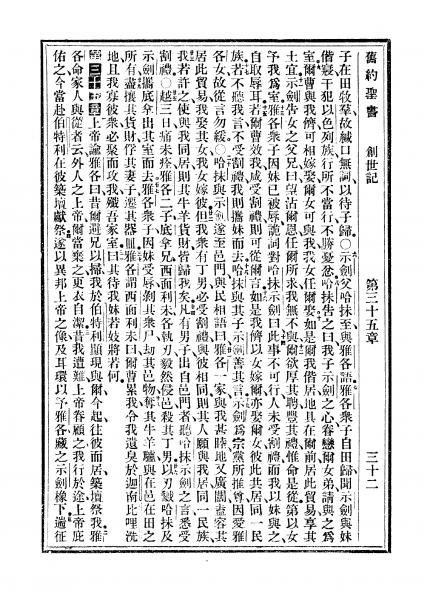 舊約聖書 創世記 第三十五章 三十二
子在田牧羣故緘口無詞以待子歸○示劍父哈抹至與雅各語雅各衆子自田歸聞示劍與妹
偕寢干犯以色列族行所不當行不勝憂忿哈抹告之曰我子示劍之心眷戀爾女弟請與之爲
室爾曹與我儕可相嫁娶爾女可與我我女任爾娶如是爾我偕居地具在爾前居此貿易享其
土宜示劍告女之父兄曰望沾爾恩任爾所求我無不與爾欲厚其聘豐其禮惟命是從第以女
予我爲室雅各衆子因妹已被辱詭詞對哈抹示劍曰此事不可行人未受割禮而我以妹與之
自取辱耳若爾曹效我咸受割禮則可從爾言如是我儕以女嫁爾亦娶爾女彼此共居同一民
族若不聽我言不受割禮則攜妹而去哈抹與其子示劍善其言示劍爲宗黨所推尊因愛雅
各女故從言勿緩○哈抹與示劍遂至邑門與民相語曰雅各一家與我甚睦地又廣闊盍容其
居此貿易我娶其女我女嫁彼但我衆有丁男必受割禮與彼相同則其人願與我居同一民族
我若許之使與我同居則其牛羊貨財皆歸我矣凡有男子出自邑門者聽哈抹示劍之言悉受
割禮○三日痛未痊雅各二子底拿兄西面利未各執刃毅然侵邑殺其丁男以刃戮哈抹及
示劍攜底拿出其室而去雅各衆子因妹受辱剝其衆尸刦其邑物奪其牛羊驢與在邑在田之
所有盡攘其貨財俘其妻子遷其器皿雅各謂西面利未曰爾曹累我令我遺臭於迦南比哩洗
地且我寡彼衆必聚而攻我殲吾家室曰其待我妹若妓將若何
第三十五章 上帝諭雅各曰昔爾避兄以掃我於伯特利顯現與爾今起往彼而居築壇祭我雅
各命家人與從者云外人之上帝爾當棄之更衣自潔昔我遭難上帝眷顧之我行於途上帝庇
佑之今當赴伯特利在彼築壇獻祭遂以異邦上帝之像及耳環以予雅各藏之示劍橡下遄征